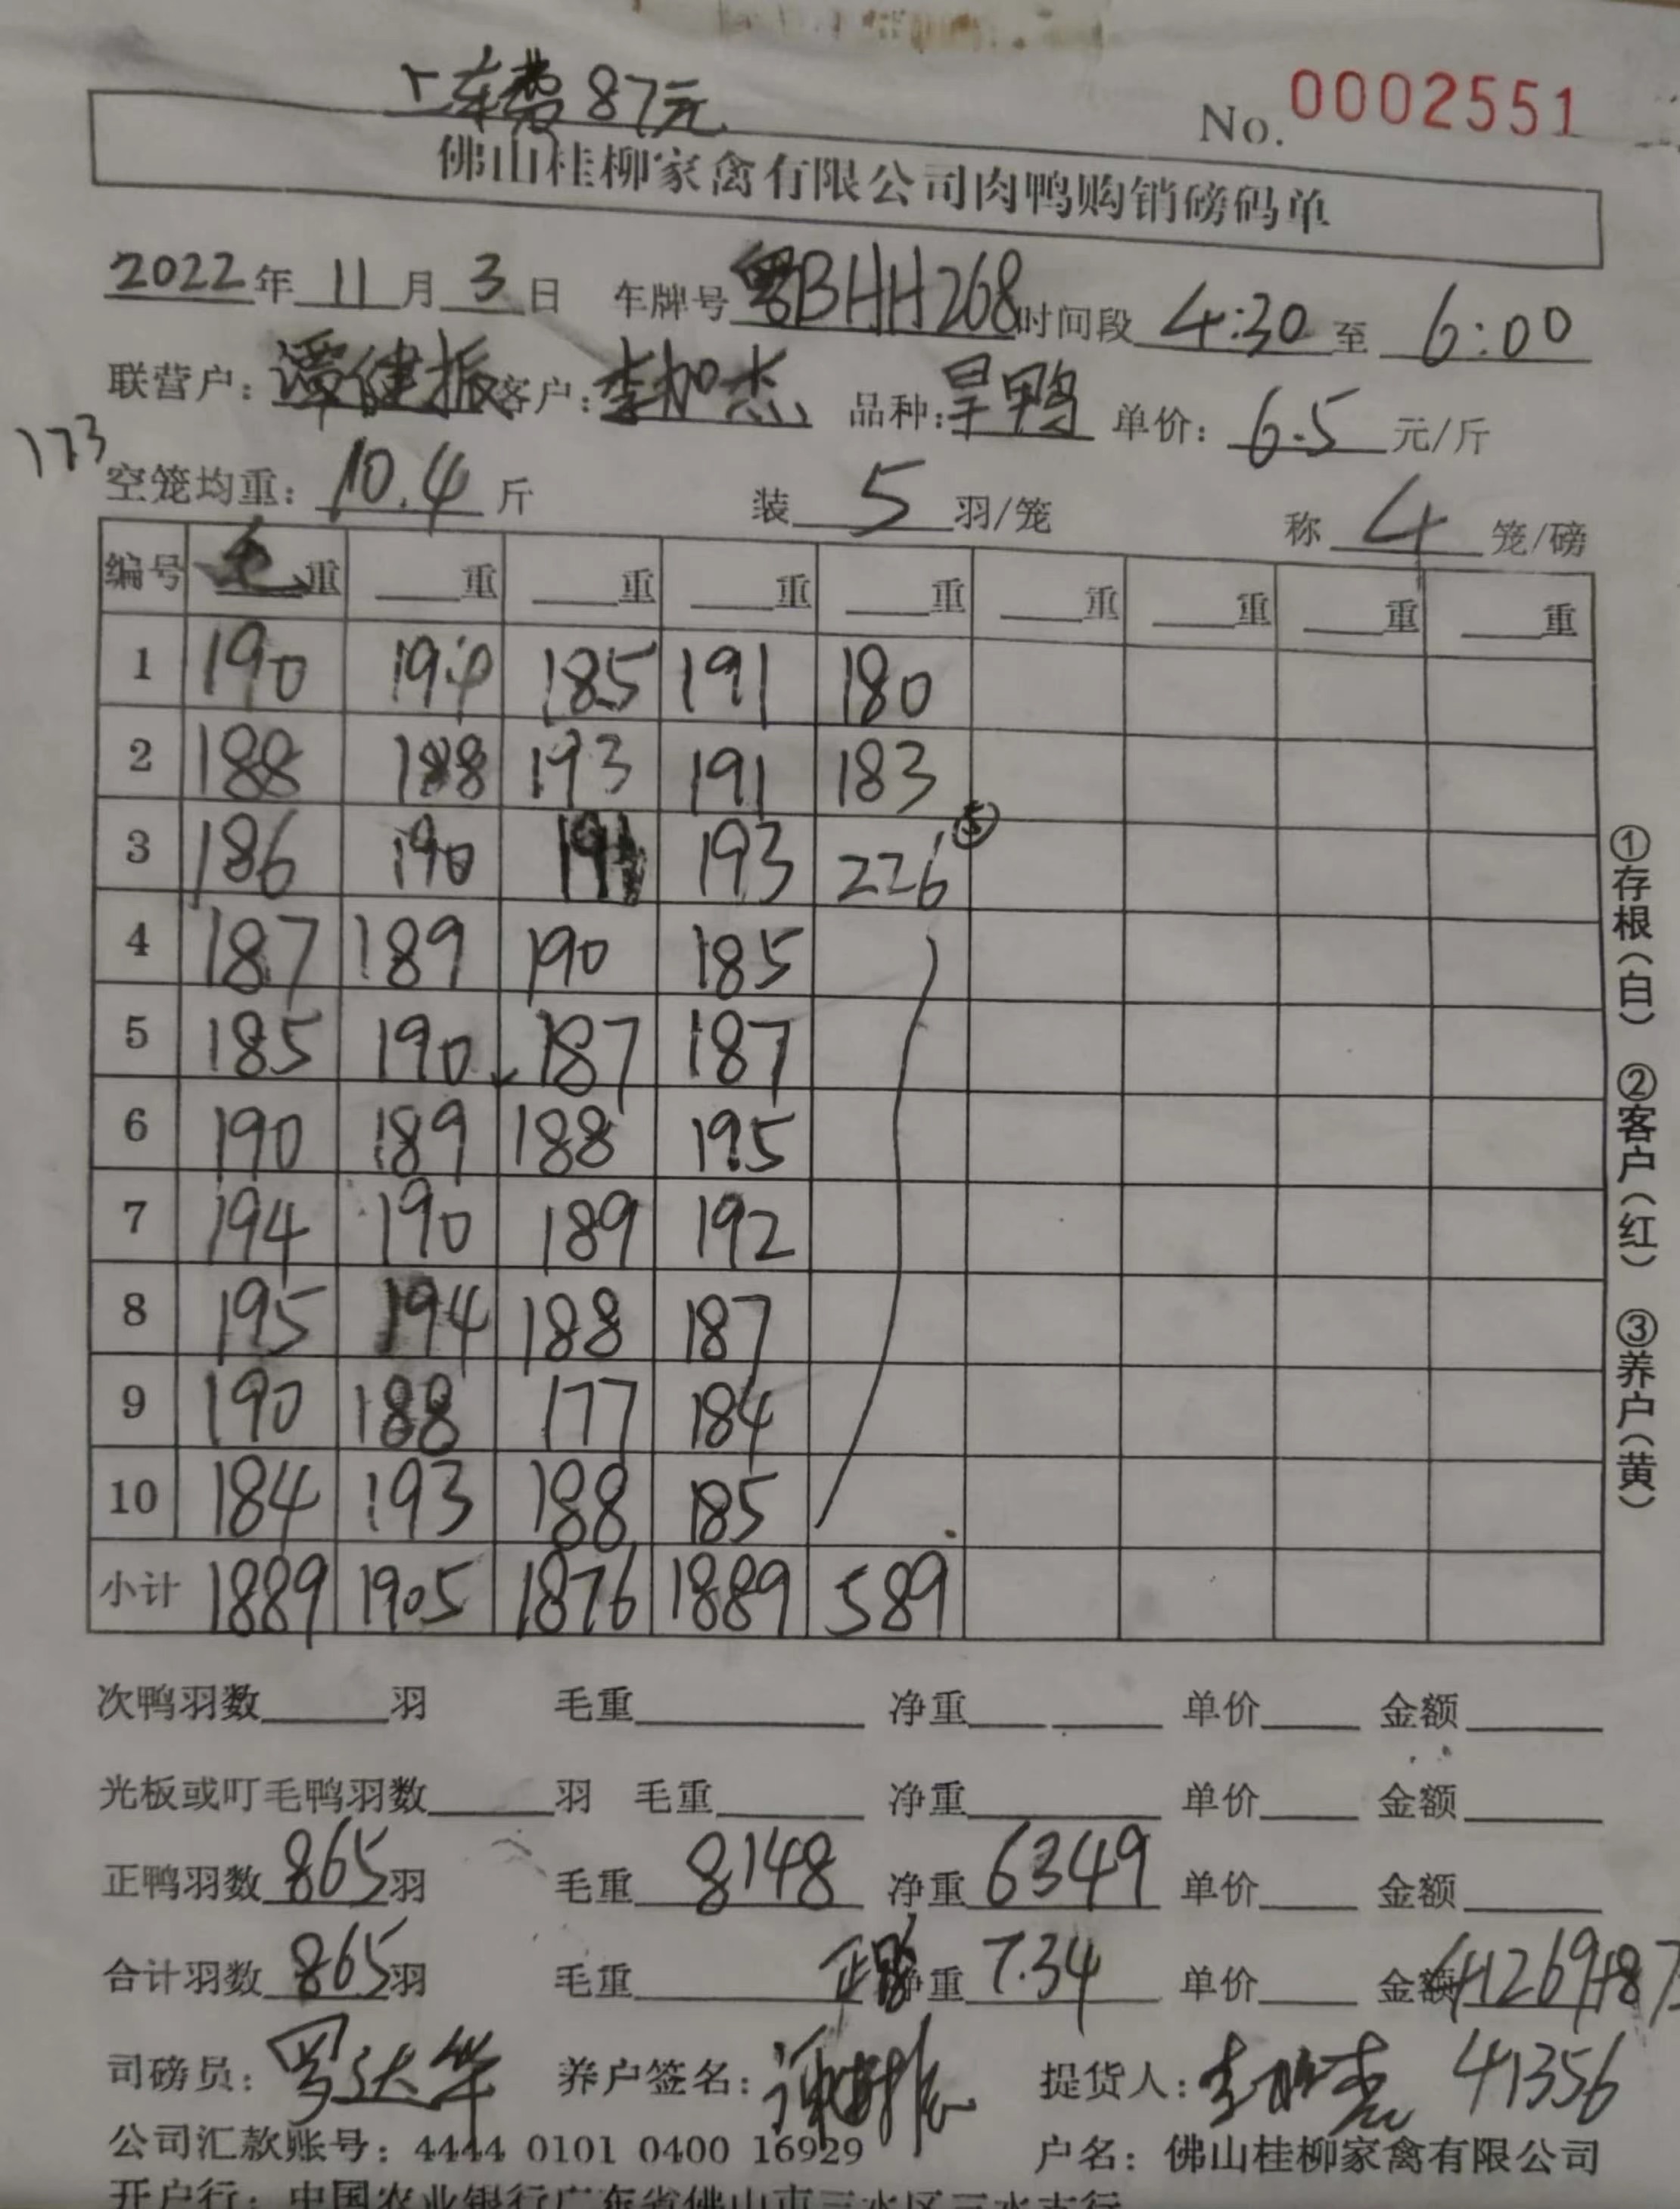 上车费 87元
No. 0002551
佛山桂柳家禽有限公司肉鸭购销磅码单
2022 年 11 月 3 日 车牌号 粤BHH268 时间段 4:30 至 6:00
联营户: 谭健振 客户: 李加杰 品种: 旱鸭 单价: 6.5 元/斤
173
空笼均重: 10.4 斤 装 5 羽/笼 称 4 笼/磅
编号 毛重 重 重 重 重 重 重 重 重
1 190 194 185 191 180
2 188 188 193 191 183
3 186 190 191 193 226 ⑤
4 187 189 190 185
5 185 190 187 187
6 190 189 188 195
7 194 190 189 192
8 195 194 188 187
9 190 188 177 184
10 184 193 188 185
小计 1889 1905 1876 1889 589
次鸭羽数 羽 毛重 净重 单价 金额
光板或叮毛鸭羽数 羽 毛重 净重 单价 金额
正鸭羽数 865 羽 毛重 8148 净重 6349 单价 金额
合计羽数 865 羽 毛重 净重 7.34 单价 金额 41269+87
司磅员: 罗达华 养户签名: 提货人: 41356
公司汇款账号: 4444 0101 0400 16929 户名: 佛山桂柳家禽有限公司
开户行: 中国农业银行广东省佛山市三水区三水支行
①存根(白) ②客户(红) ③养户(黄)